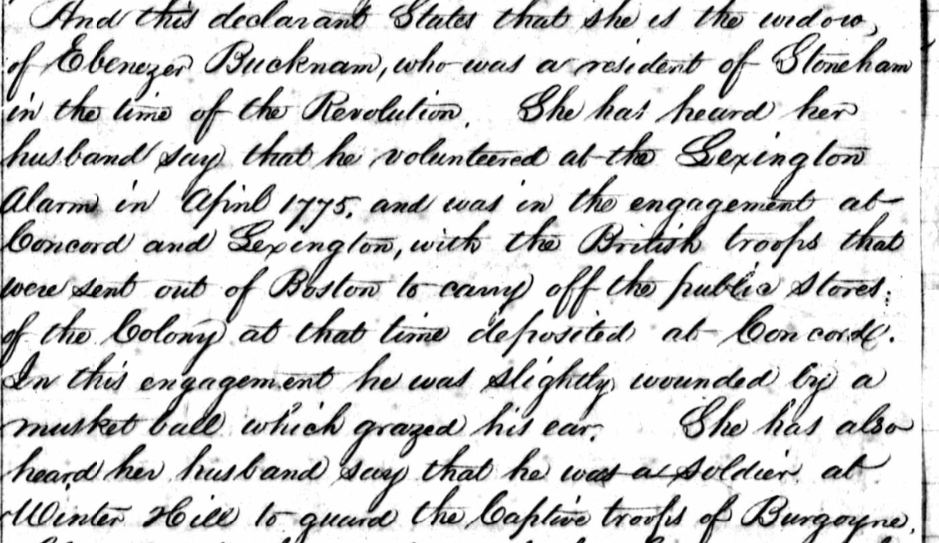 And this declarant States that she is the widow,
of Ebenezer Bucknam, who was a resident of Stoneham
in the time of the Revolution. She has heard her
husband say that he volunteered at the Lexington
Alarm in April 1775. and was in the engagement at
Concord and Lexington, with the British troops that
were sent out of Boston to carry off the public stores.
of the Colony at that time deposited at Concord.
In this engagement he was slightly wounded by a
musket ball which grazed his ear. She has also
heard her husband say that he was a soldier at
Winter Hill to guard the Captive troops of Burgoyne.